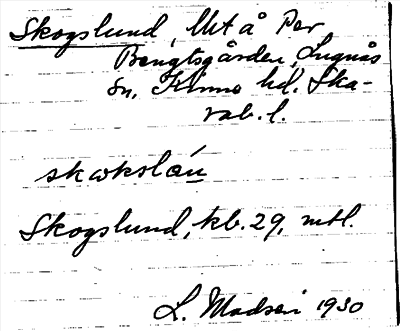 Skogslund, Utå Per
Bengtsgården, Lugnås
sn, Kinne hd. Ska-
rab. l.
skokslún
Skogslund, kb. 29, mtl.
L. Madsen 1930